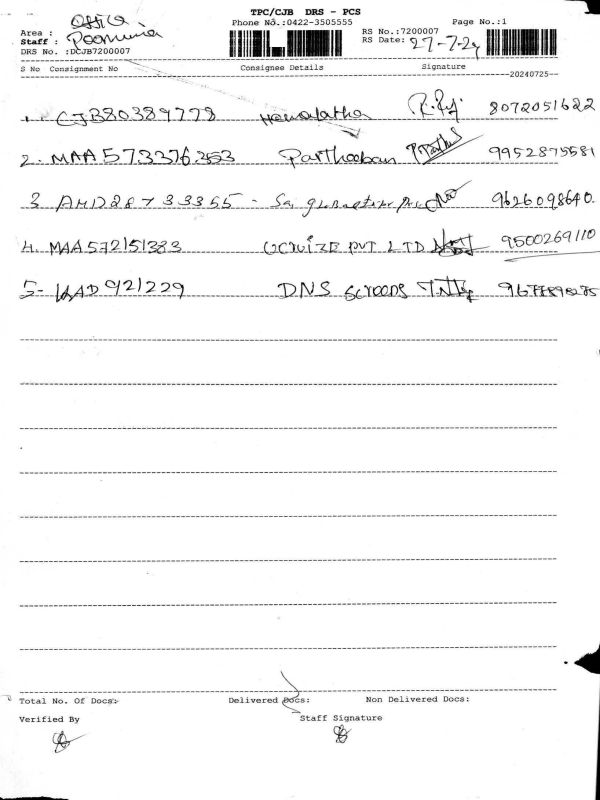 TPC/CJB DRS - PCS
Phone No.:0422-3505555 Page No.:1
Area : Office
Staff : Poornima
DRS No. :DCJB7200007
RS No.:7200007
RS Date: 27-7-24
S No Consignment No Consignee Details Signature
20240725
1. CJB80389778 8072051622
2. MAA573376353 Partheeban 9952875581
3. AMD28733355 - Sri 9626098640.
4. MAA572151383 UCRUIZE PVT LTD 9500269110
5- 921229 DNS screens
Total No. Of Docs: Delivered Docs: Non Delivered Docs:
Verified By Staff Signature